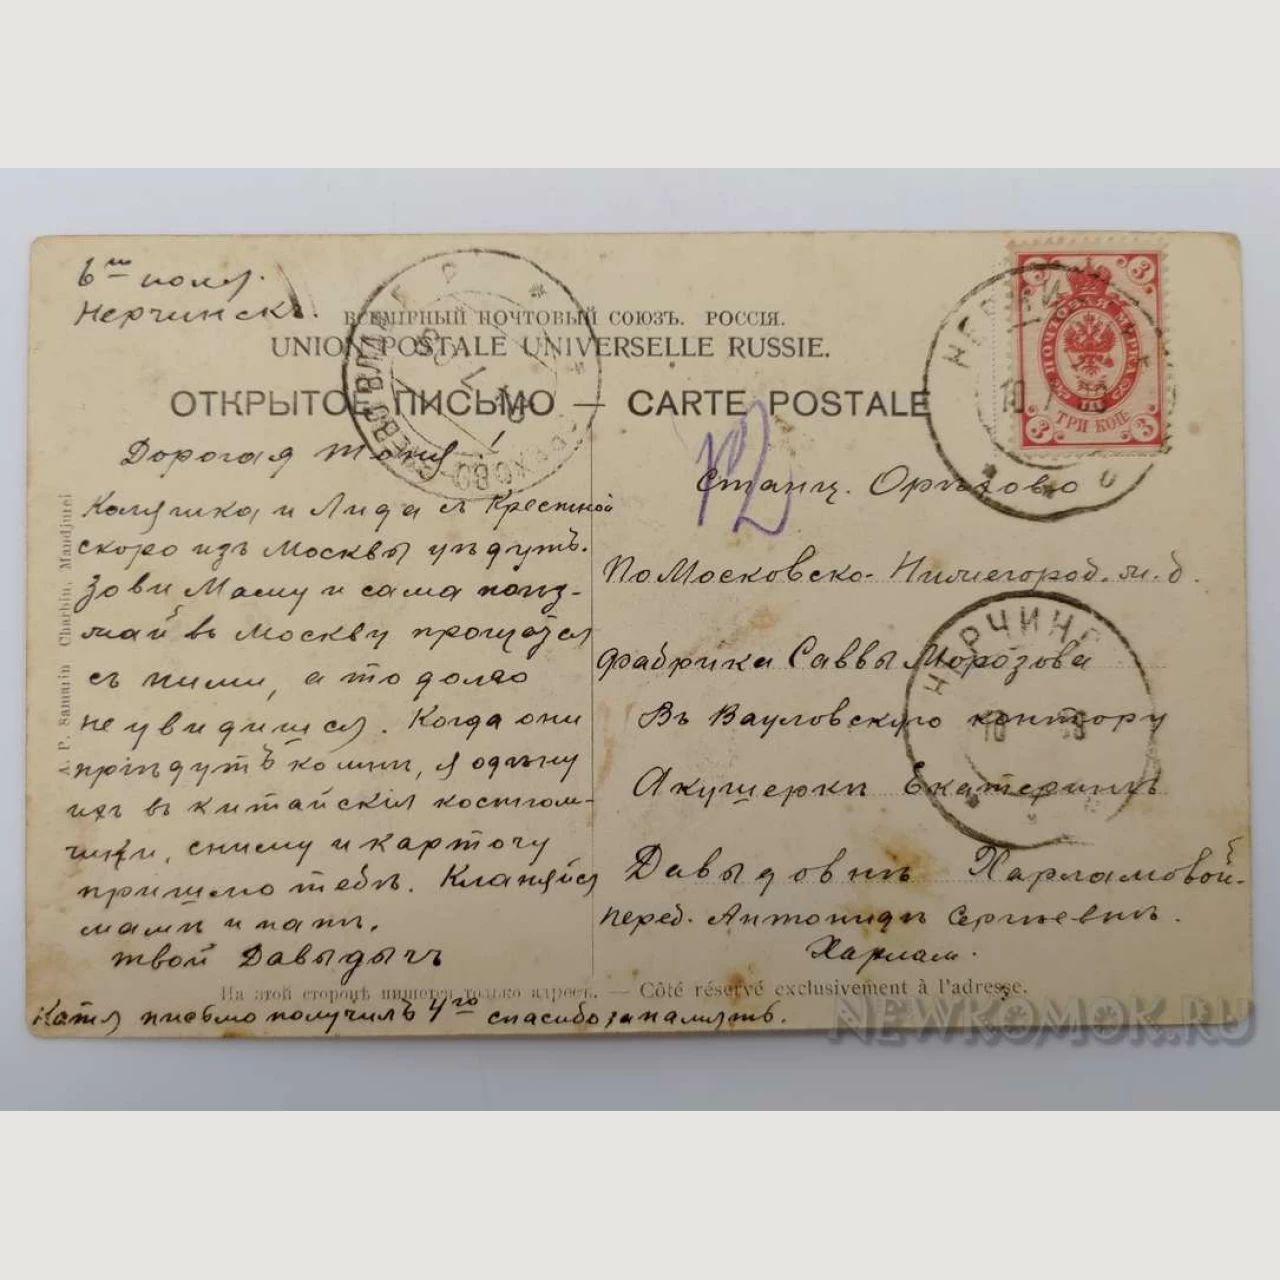 6ш
Нерчинскъ.
ВСЕМІРНЫЙ ПОЧТОВЫЙ СОЮЗЪ. РОССІЯ.
UNION POSTALE UNIVERSELLE RUSSIE.
ОТКРЫТОЕ ПИСЬМО — CARTE POSTALE
12
Дорогая Тоня!
Коляшка и Лида съ Крестной
скоро изъ Москвы уѣдутъ.
Зови Маму и сама
въ Москву
съ ними, а то долго
не увидишся. Когда они
пріѣдутъ ко мнѣ, я одѣну
ихъ въ китайскія костюм-
чики, сниму и карточу
пришлю тебѣ. Кланяйся
мамѣ и папѣ.
твой Давыдычъ
На этой сторонѣ пишется только адресъ. — Côté réservé exclusivement à l'adresse.
Катя письмо получилъ 4го спасибо за память.
Станц. Орѣхово
По Московско-Нижегород. ж. д.
Фабрика Саввы Морозова
Въ Вауловскую контору
Акушеркѣ Екатеринѣ
Давыдовнѣ Харламовой
перед. Антонидѣ Сергѣевнѣ.
Харлам.
Charbin, Mandjurei
ПОЧТОВАЯ МАРКА
3 3 3 3
ТРИ КОП.
НЕРЧИНС
NEWKOMOK.RU